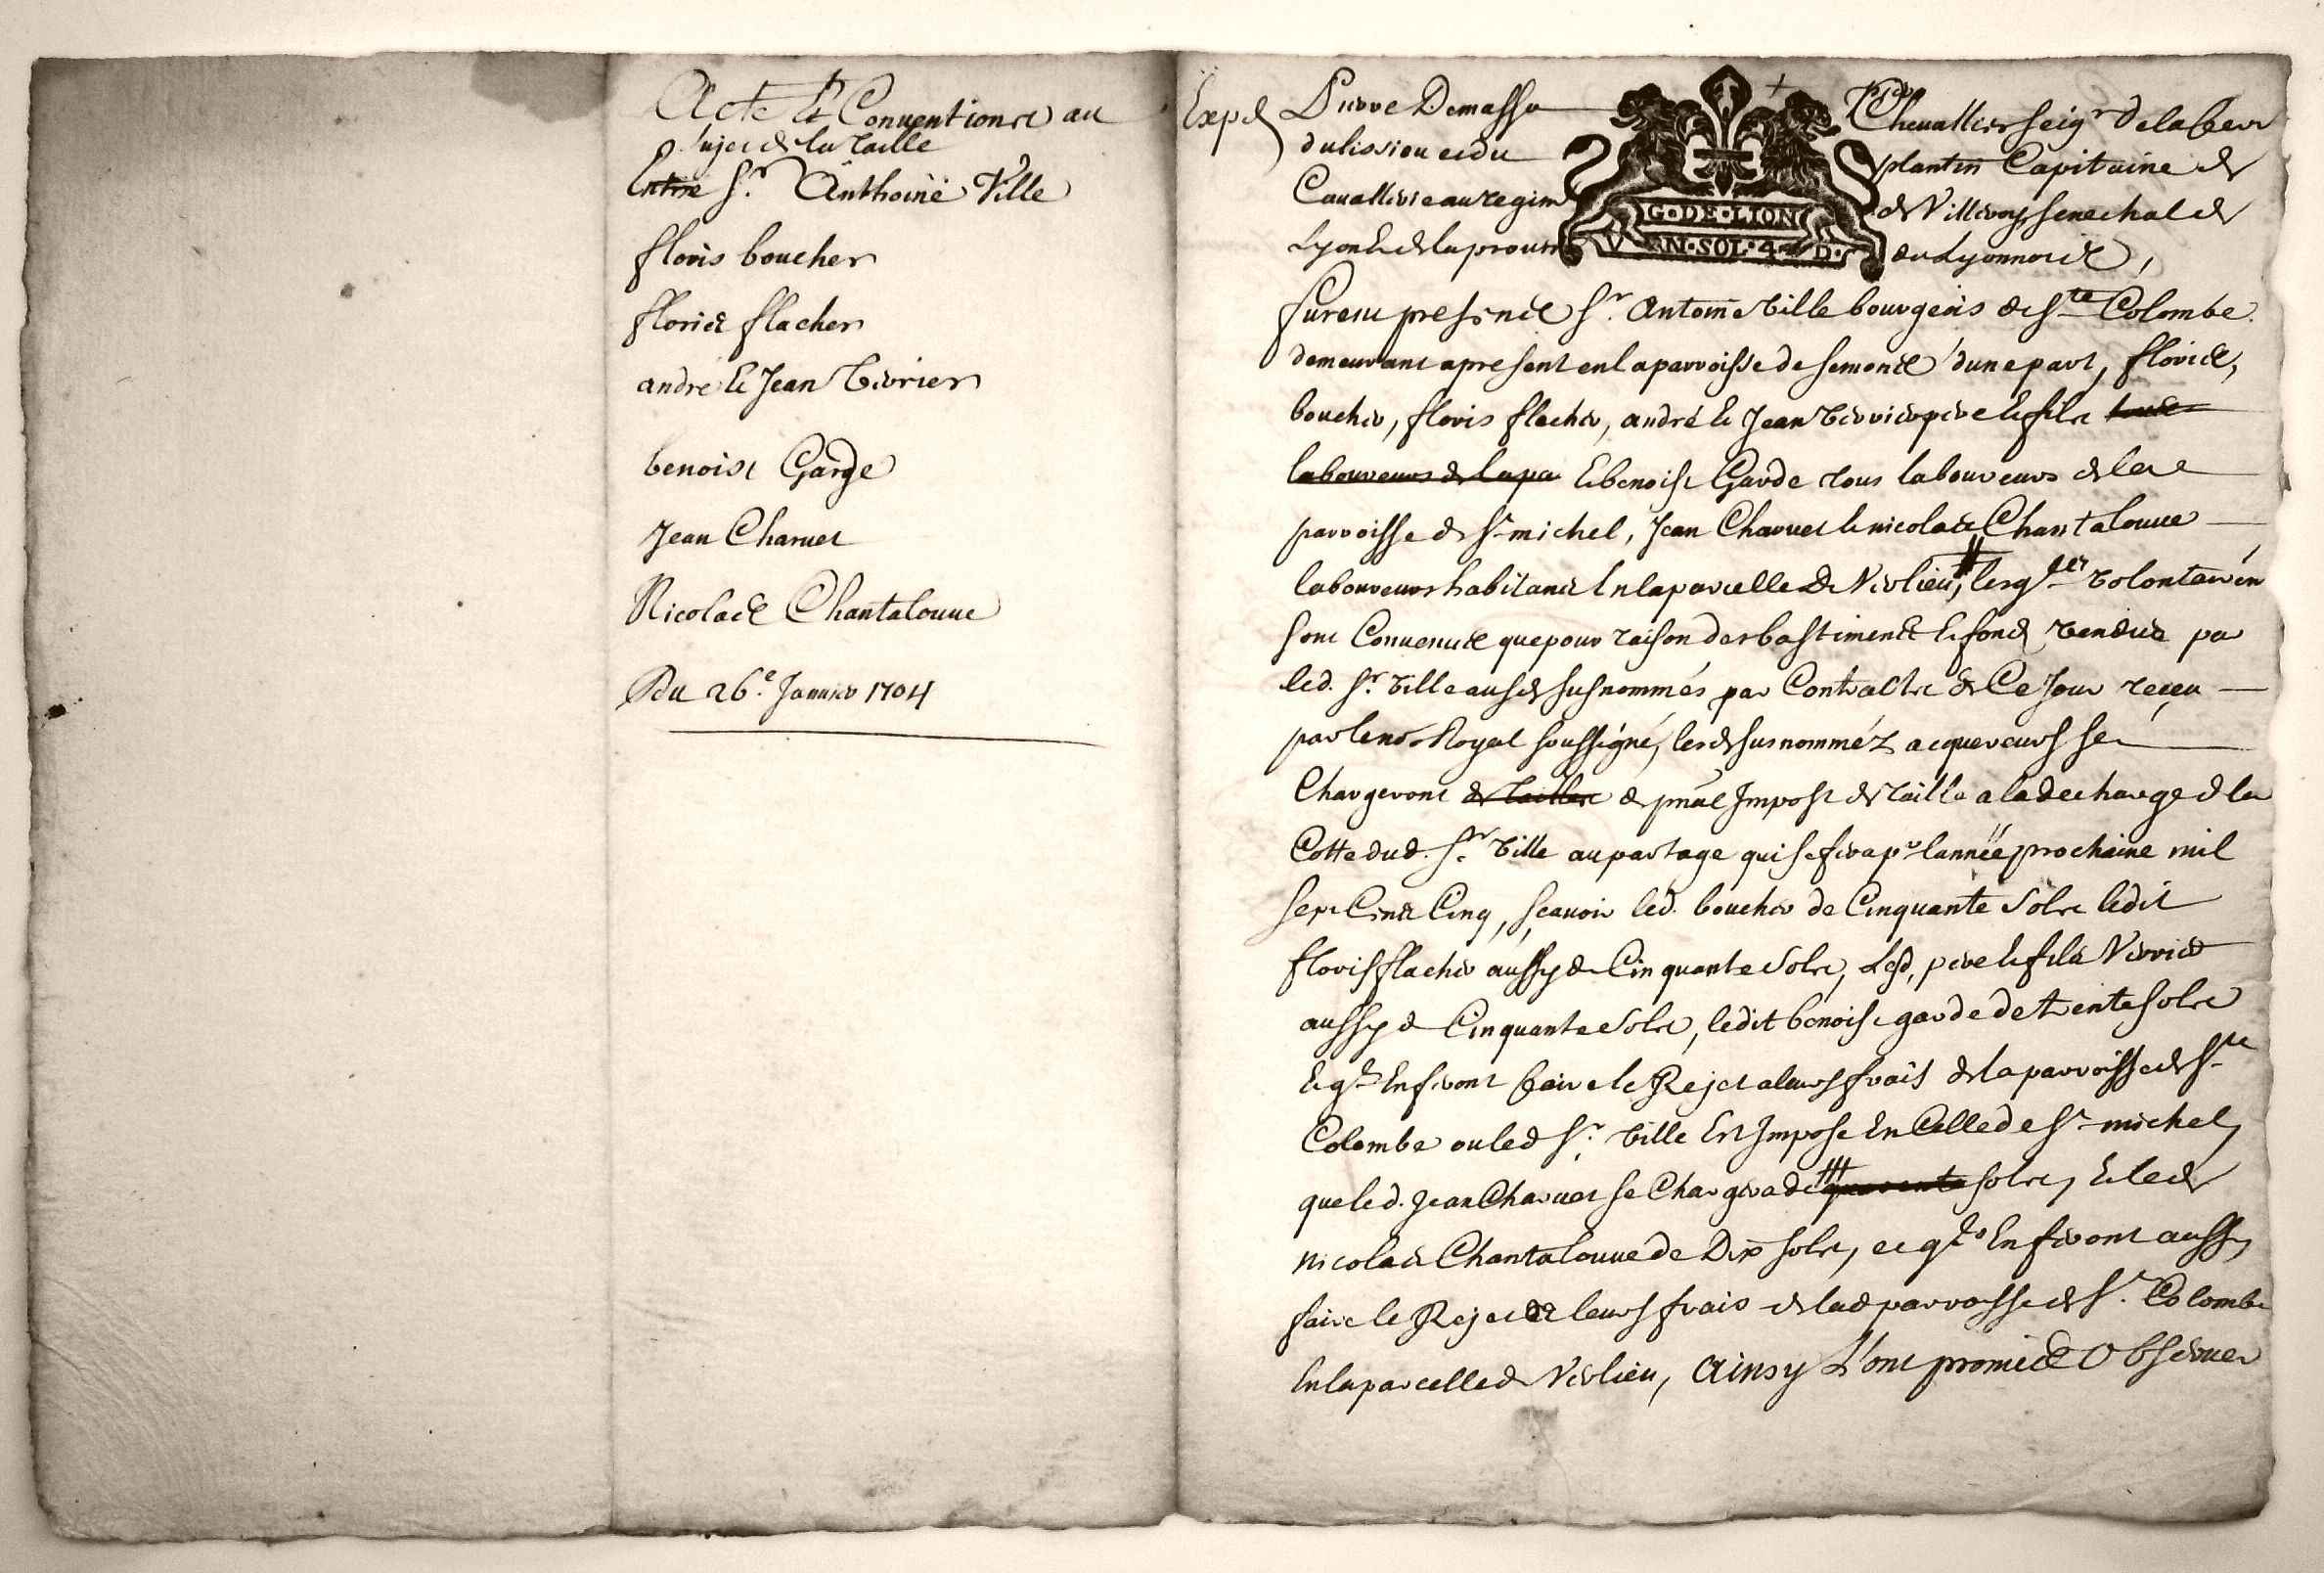 Acte de Conventions au
sujet de la taille
Entre Sr. Anthoine Ville
floris boucher
floris flacher
andre & Jean Verrier
benoist Garde
Jean Charuet
Nicolas Chantalouue
Du 26e. Januier 1704
Exped
Pierre Demasso Cheuallier seigr de la ferr
du lission et du plantin Capitaine de
Cauallerie au regim de Villeroy senechal de
Lyon & de la prouin de Lyonnois,
G·DE·LION
V N·SOL·4·D·
furent presents Sr. Antoine Ville bourgeois de Ste Colombe
demeurant a present en la parroisse de semons d'une part, floris
boucher, floris flacher, andré & Jean Verrier pere & fils tous
laboureurs de la pa & benoist Garde tous laboureurs de la
parroisse de St michel, Jean Charuet & nicolas Chantalouue
laboureurs habitans En la parcelle de Verlieu, lesqls volontairem
sont Conuenus que pour raison des bastiments & fonds vendus par
led. Sr. Ville ausd susnommés par Contracts de Ce Jour receu
par le nore Royal soussigné, lesd susnomméz acquereurs se
Chargeront de tailles de pnal Impost de taille a la decharge de la
Cotte dud. Sr. Ville au partage qui se fera pr l'année prochaine mil
sept Cents Cinq, sçauoir led. boucher de Cinquante Sols ledit
floris flacher aussy de Cinquante Sols, Lesd. pere & fils Verrier
aussy de Cinquante Sols, ledit benoist garde de trente sols
& qls En feront faire le Rejet a leurs frais de la parroisse de Ste
Colombe ou led Sr. Ville Est Imposé En Celle de St michel,
que led. Jean Charuet se Chargera de quarente sols, & led
nicolas Chantalouue de Dix sols, et qls En feront aussy
faire le Rejet a leurs frais de lad parroisse de St. Colombe
En la parcelle de Verlieu, Ainsy L'ont promis Obseruer